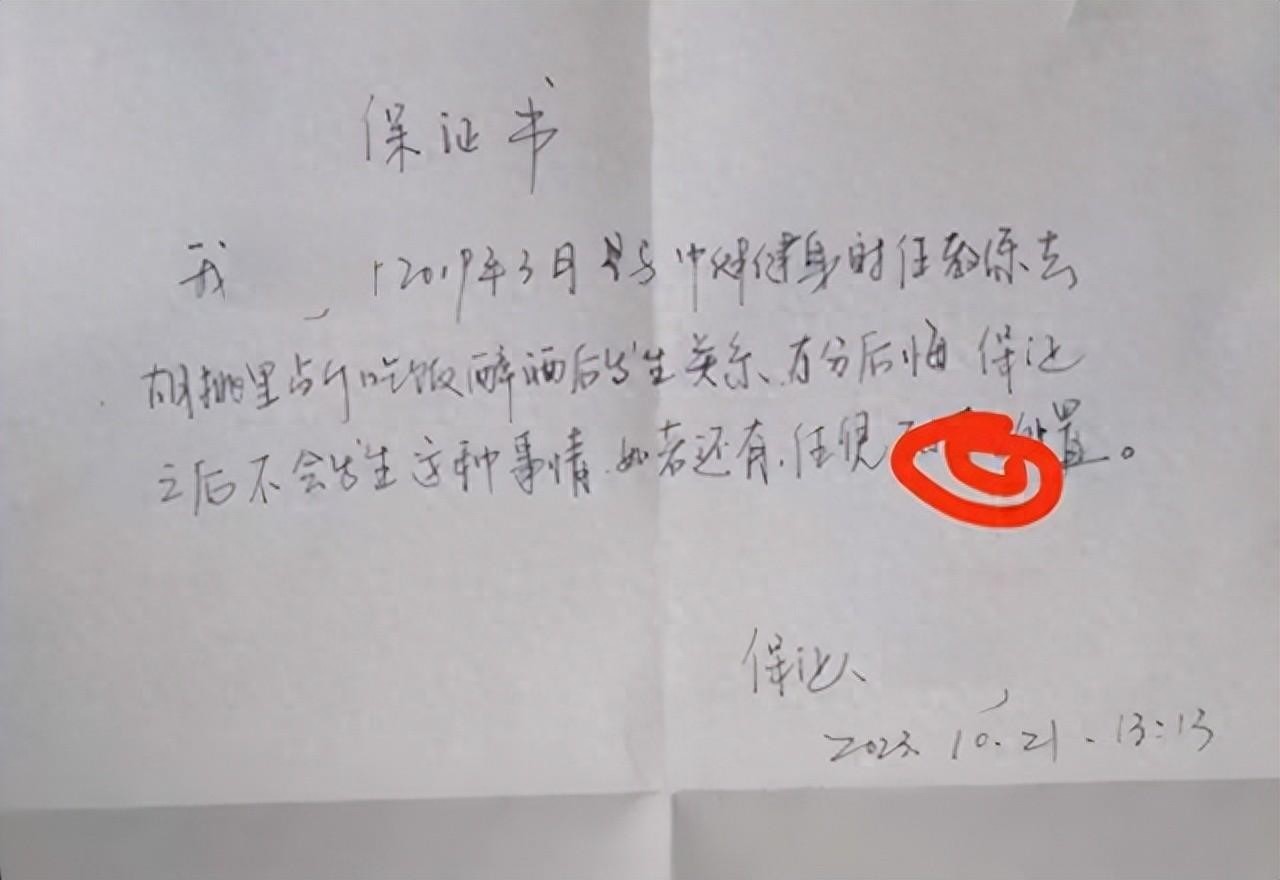 保证书
我 2019年3月 与中健健身时任教练去
胡桃里 吃饭醉酒后发生关系、万分后悔 保证
之后不会发生这种事情.如若还有.任凭 处置。
保证、
2023. 10. 21 . 13:13